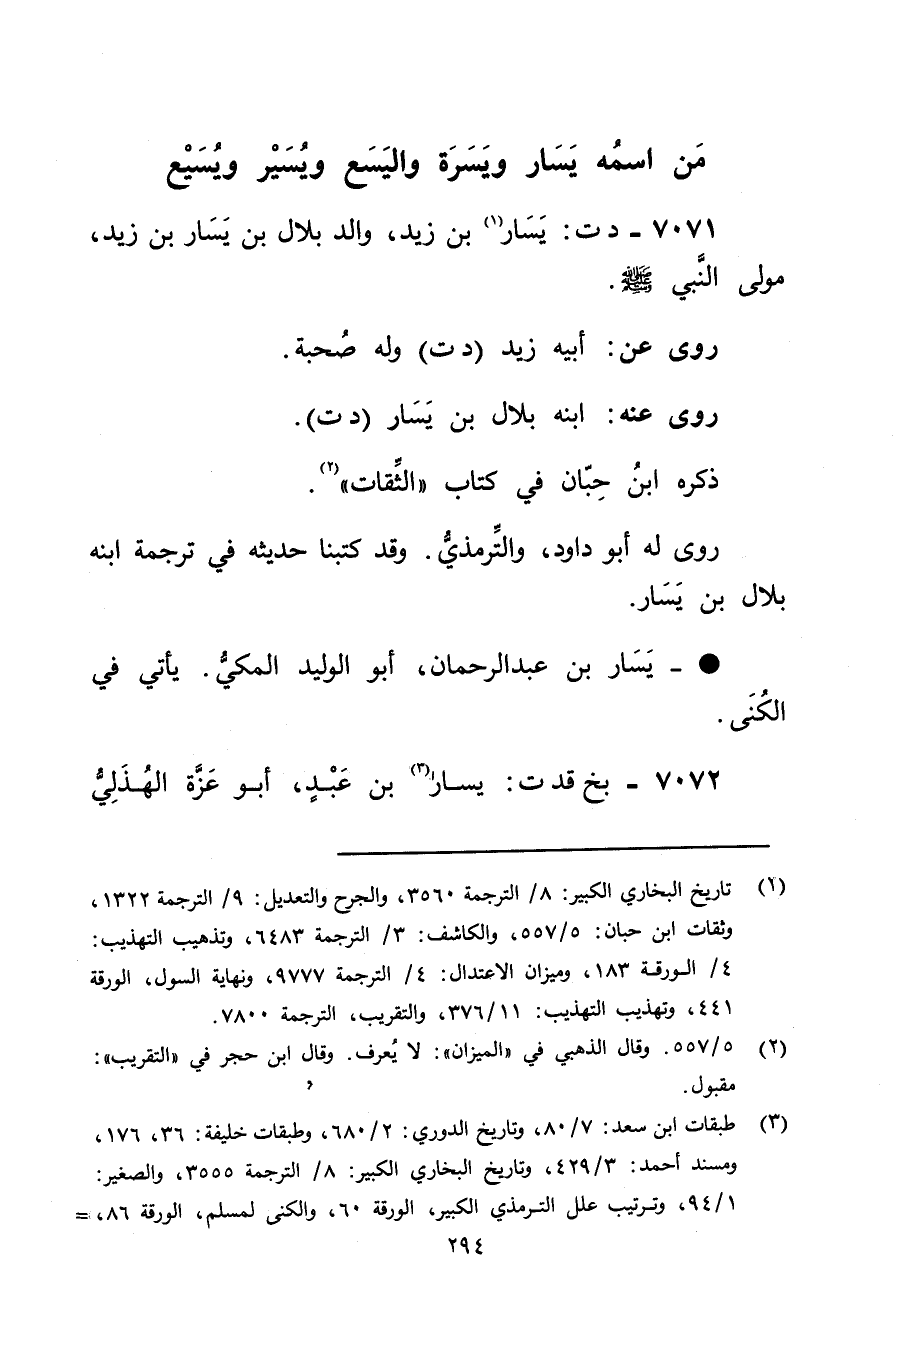 مَن اسمُه يَسَار ويَسَرَة واليَسَع ويُسَيْر ويُسَيْع
٧٠٧١ - د ت: يَسَار(١) بن زيد، والد بلال بن يَسَار بن زيد،
مولى النَّبي ﷺ.
روى عن: أبيه زيد (د ت) وله صُحبة.
روى عنه: ابنه بلال بن يَسَار (د ت).
ذكره ابنُ حِبّان في كتاب «الثِّقات»(٢).
روى له أبو داود، والتِّرمذيُّ. وقد كتبنا حديثه في ترجمة ابنه
بلال بن يَسَار.
● - يَسَار بن عبدالرحمان، أبو الوليد المكيُّ. يأتي في
الكُنَى.
٧٠٧٢ - بخ قد ت: يسار(٣) بن عَبْدٍ، أبو عَزَّة الهُذَلِيُّ
(١) تاريخ البخاري الكبير: ٨/ الترجمة ٣٥٦٠، والجرح والتعديل: ٩/ الترجمة ١٣٢٢،
وثقات ابن حبان: ٥/٥٥٧، والكاشف: ٣/ الترجمة ٦٤٨٣، وتذهيب التهذيب:
٤/ الورقة ١٨٣، وميزان الاعتدال: ٤/ الترجمة ٩٧٧٧، ونهاية السول، الورقة
٤٤١، وتهذيب التهذيب: ٣٧٦/١١، والتقريب، الترجمة ٧٨٠٠.
(٢) ٥/٥٥٧. وقال الذهبي في «الميزان»: لا يُعرف. وقال ابن حجر في «التقريب»:
مقبول.
(٣) طبقات ابن سعد: ٨٠/٧، وتاريخ الدوري: ٦٨٠/٢، وطبقات خليفة: ٣٦، ١٧٦،
ومسند أحمد: ٤٢٩/٣، وتاريخ البخاري الكبير: ٨/ الترجمة ٣٥٥٥، والصغير:
٩٤/١، وترتيب علل الترمذي الكبير، الورقة ٦٠، والكنى لمسلم، الورقة ٨٦، =
٢٩٤